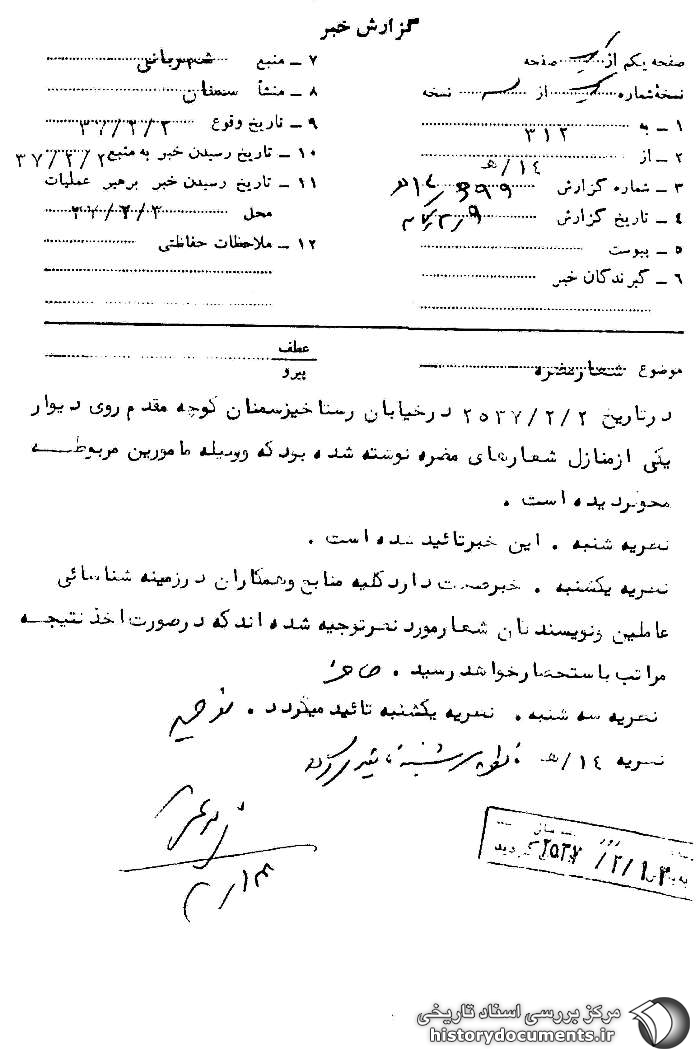 گزارش خبر
صفحه یکم از یک صفحه
نسخهٔ شماره یک از سه نسخه
۱ ـ به ۳۱۲
۲ ـ از ۱۴/هـ
۳ ـ شماره گزارش
۴ ـ تاریخ گزارش
۵ ـ پیوست
۶ ـ گیرندگان خبر
۷ ـ منبع شهربانی
۸ ـ منشأ سمنان
۹ ـ تاریخ وقوع ۳۷/۲/۲
۱۰ ـ تاریخ رسیدن خبر به منبع ۳۷/۲/۲
۱۱ ـ تاریخ رسیدن خبر برهبر عملیات
محل ۳۷/۲/۳
۱۲ ـ ملاحظات حفاظتی
موضوع شعار مضره
عطف
پیرو
در تاریخ ۲۵۳۷/۲/۲ در خیابان رستاخیز سمنان کوچه مقدم روی دیوار
یکی از منازل شعارهای مضره نوشته شده بود که وسیله مامورین مربوطه
محو گردیده است .
نظریه شنبه . این خبر تائید شده است .
نظریه یکشنبه . خبر صحت دارد کلیه منابع و همکاران در زمینه شناسائی
عاملین و نویسندگان شعار مورد نظر توجیه شده اند که در صورت اخذ نتیجه
مراتب باستحضار خواهد رسید .
نظریه سه شنبه . نظریه یکشنبه تائید میگردد .
نظریه ۱۴/هـ نظریه سه شنبه تائید میگردد
مرکز بررسی اسناد تاریخی
historydocuments.ir